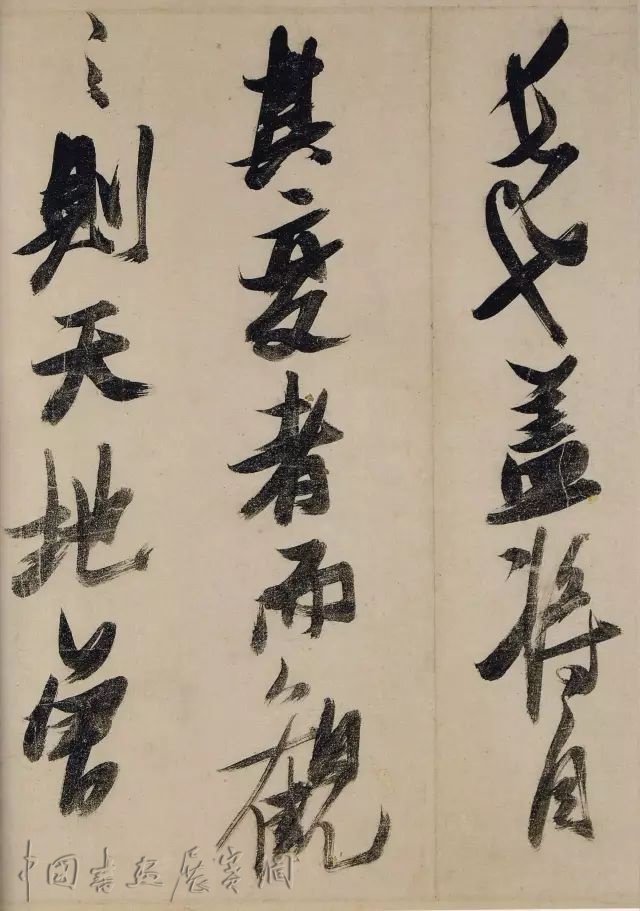 長也盖将自
其變者而觀
之則天地曾
中國書畫展賽網